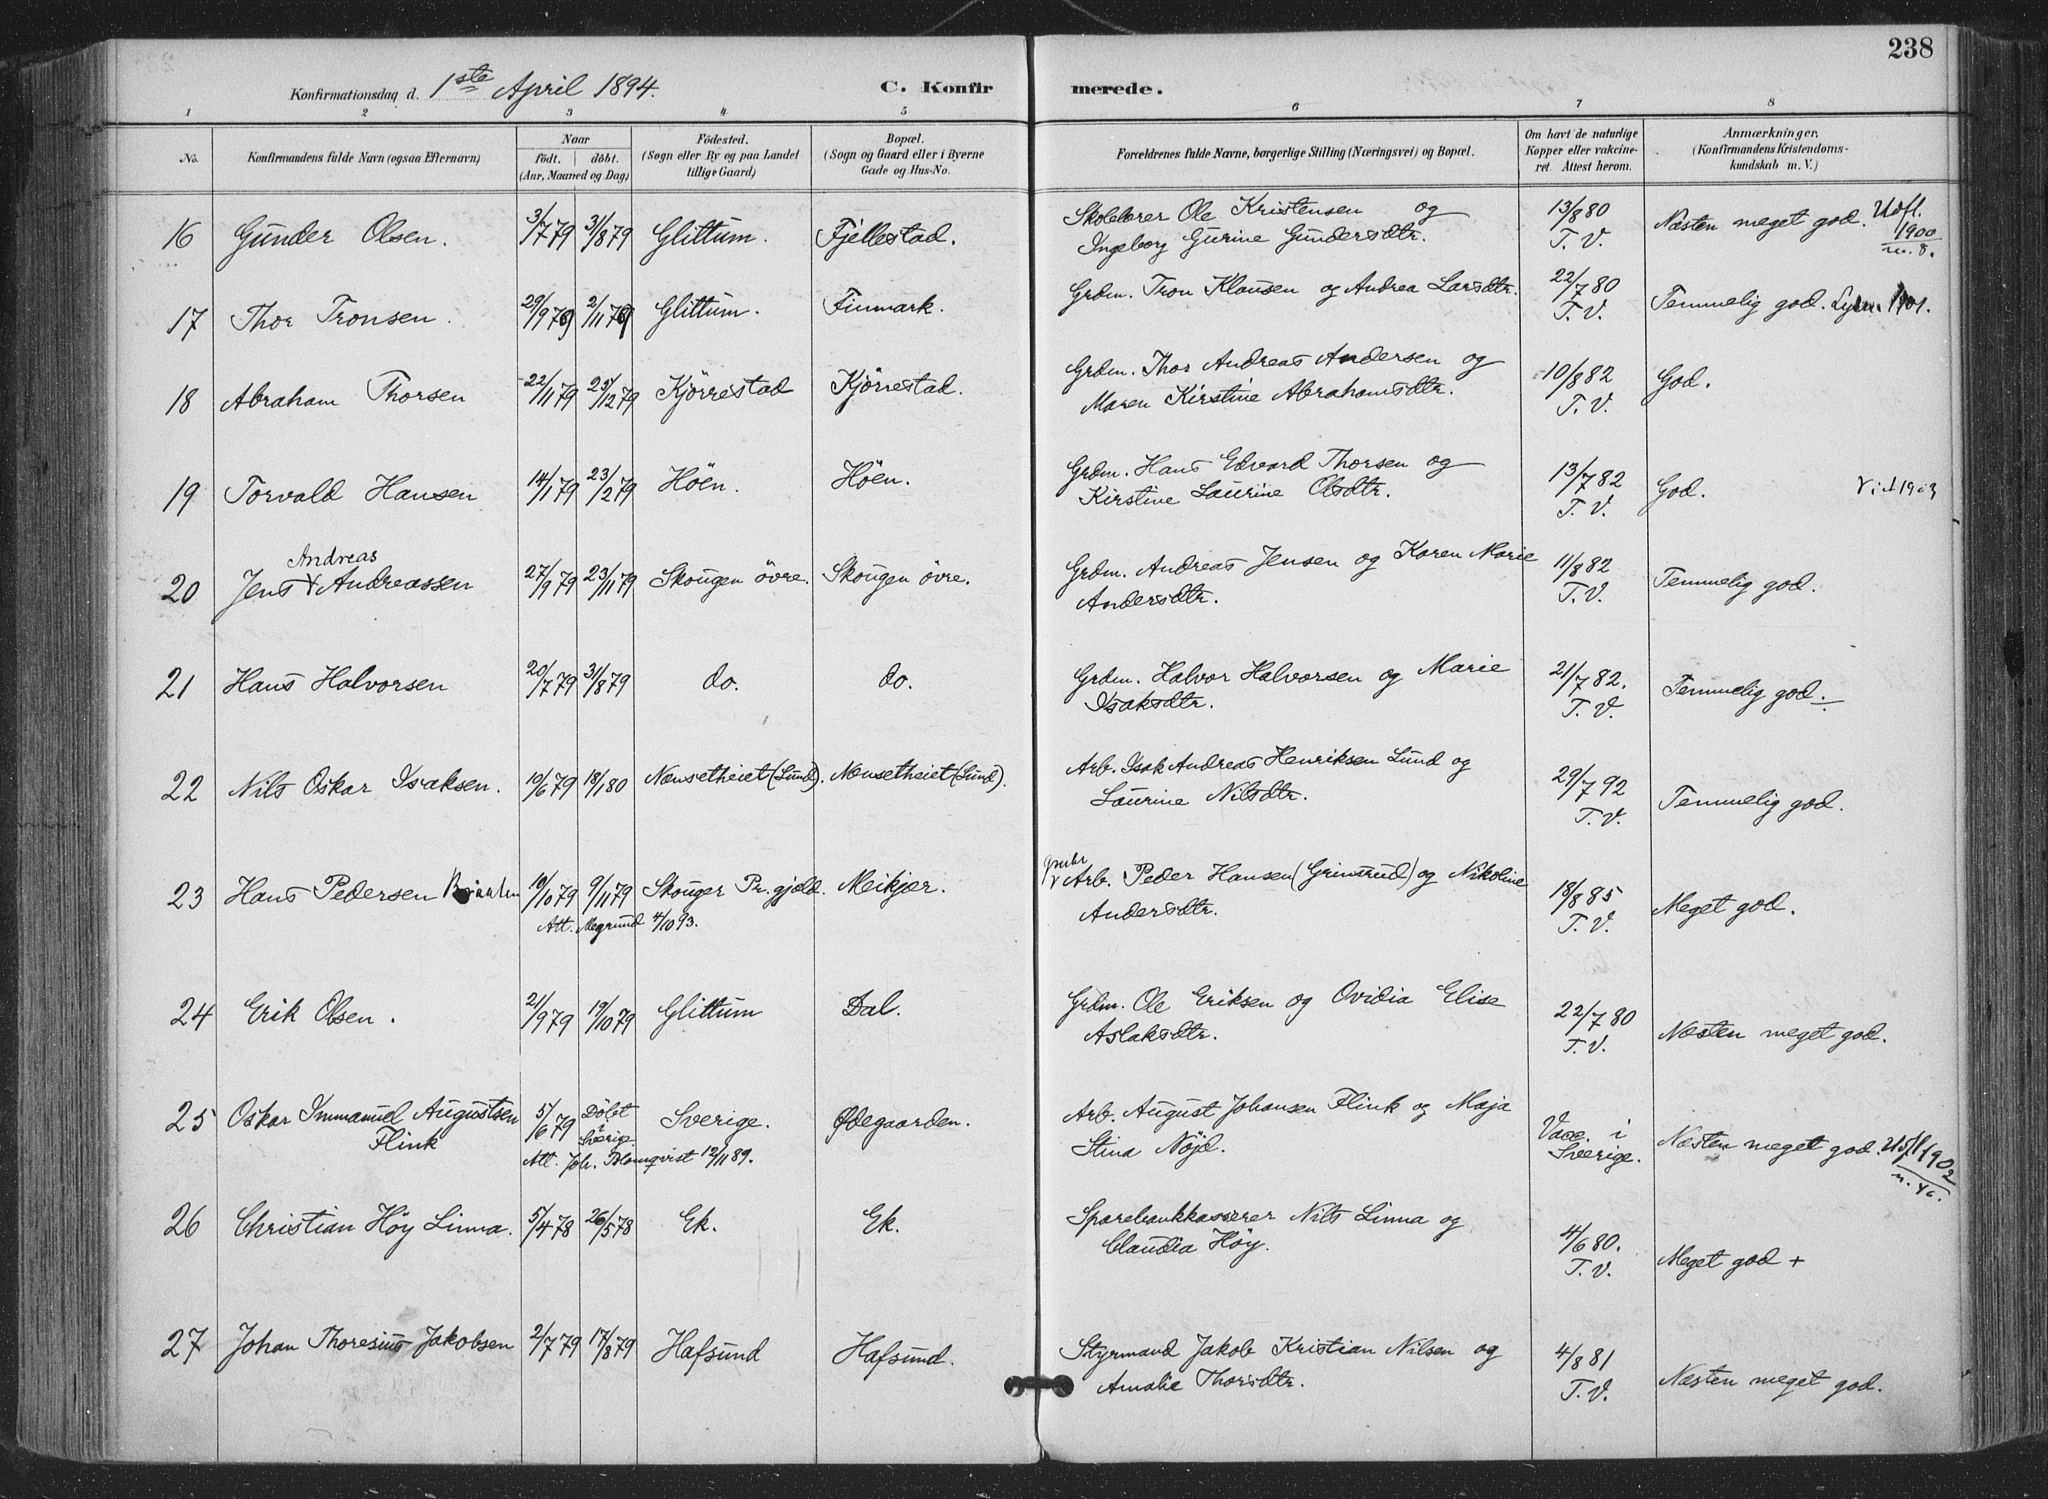 238
Konfirmationsdag d. 1ste April 1894. C. Konfirmerede.
1 2 3 4 5 6 7 8
No. Konfirmandens fulde Navn (ogsaa Efternavn) Naar født. døbt. (Aar, Maaned og Dag) Fødested. (Sogn eller By og paa Landet tillige Gaard) Bopæl. (Sogn og Gaard eller i Byerne Gade og Hus-No. Forældrenes fulde Navne, borgerlige Stilling (Næringsvei) og Bopæl. Om havt de naturlige Kopper eller vakcineret. Attest herom. Anmærkninger. (Konfirmandens Kristendomskundskab m. V.)
16 Gunder Olsen. 3/7 79 31/8 79 Glittum. Fjellestad. Skolelærer Ole Kristensen og 13/8 80 Næsten meget god. Udfl. 1900
Ingeborg Gurine Gundersdtr. T. V.
17 Thor Tronsen. 29/9 79 2/11 79 Glittum. Finmark. Grdm. Tron Klausen og Andrea Larsdtr. 22/7 80 Temmelig god. 1901.
T. V.
18 Abraham Thorsen 22/11 79 25/12 79 Kjörrestad Kjörrestad. Grdm. Thor Andreas Andersen og 10/8 82 God.
Maren Kirstine Abrahamsdtr. T. V.
19 Torvald Hansen 14/1 79 23/2 79 Höen. Höen. Grdm. Hans Edvard Thorsen og 13/7 82 God.
Kirstine Laurine Olsdtr. T. V.
Andreas
20 Jens Andreassen 27/9 79 23/11 79 Skougen övre. Skougen övre. Grdm. Andreas Jensen og Karen Marie 11/8 82 Temmelig god.
Andersdtr. T. V.
21 Hans Halvorsen 20/7 79 31/8 79 do. do. Grdm. Halvor Halvorsen og Marie 21/7 82. Temmelig god.
Isaksdtr. T. V.
22 Nils Oskar Isaksen. 19/6 79 18/1 80 Nænsetheiet (Lund). Nænsetheiet (Lund). Arb. Isak Andreas Henriksen Lund og 29/7 92 Temmelig god.
Laurine Nilsdtr. T. V.
23 Hans Pedersen 19/10 79 9/11 79 Skouger Pr.gjeld. Meikjær. Arb. Peder Hansen (Grinsrud) og Nikoline 18/8 85 Meget god.
Att. 4/10 93. Andersdtr. T. V.
24 Erik Olsen. 21/9 79 19/10 79 Glittum Dal. Grdm. Ole Eriksen og Ovidia Elise 22/7 80 Næsten meget god.
Aslaksdtr. T. V.
25 Oskar Immanuel Augustsen 5/6 79 Döbt i Sverige. Sverige. Ødegaarden. Arb. August Johansen Flink og Maja Vacc. i Sverige. Næsten meget god. Udfl 1902
Flink Att. Joh. Blomqvist 12/11 89. Stina Nöjd.
26 Christian Höy Linna. 5/4 78 26/5 78 Ek. Ek. Sparebankkasserer Nils Linna og 4/6 80. Meget god +
Claudia Höy. T. V.
27 Johan Thoresius Jakobsen 2/7 79 17/8 79 Hafsund Hafsund. Styrmand Jakob Kristian Nilsen og 4/8 81 Næsten meget god.
Amalie Thorsdtr. T. V.